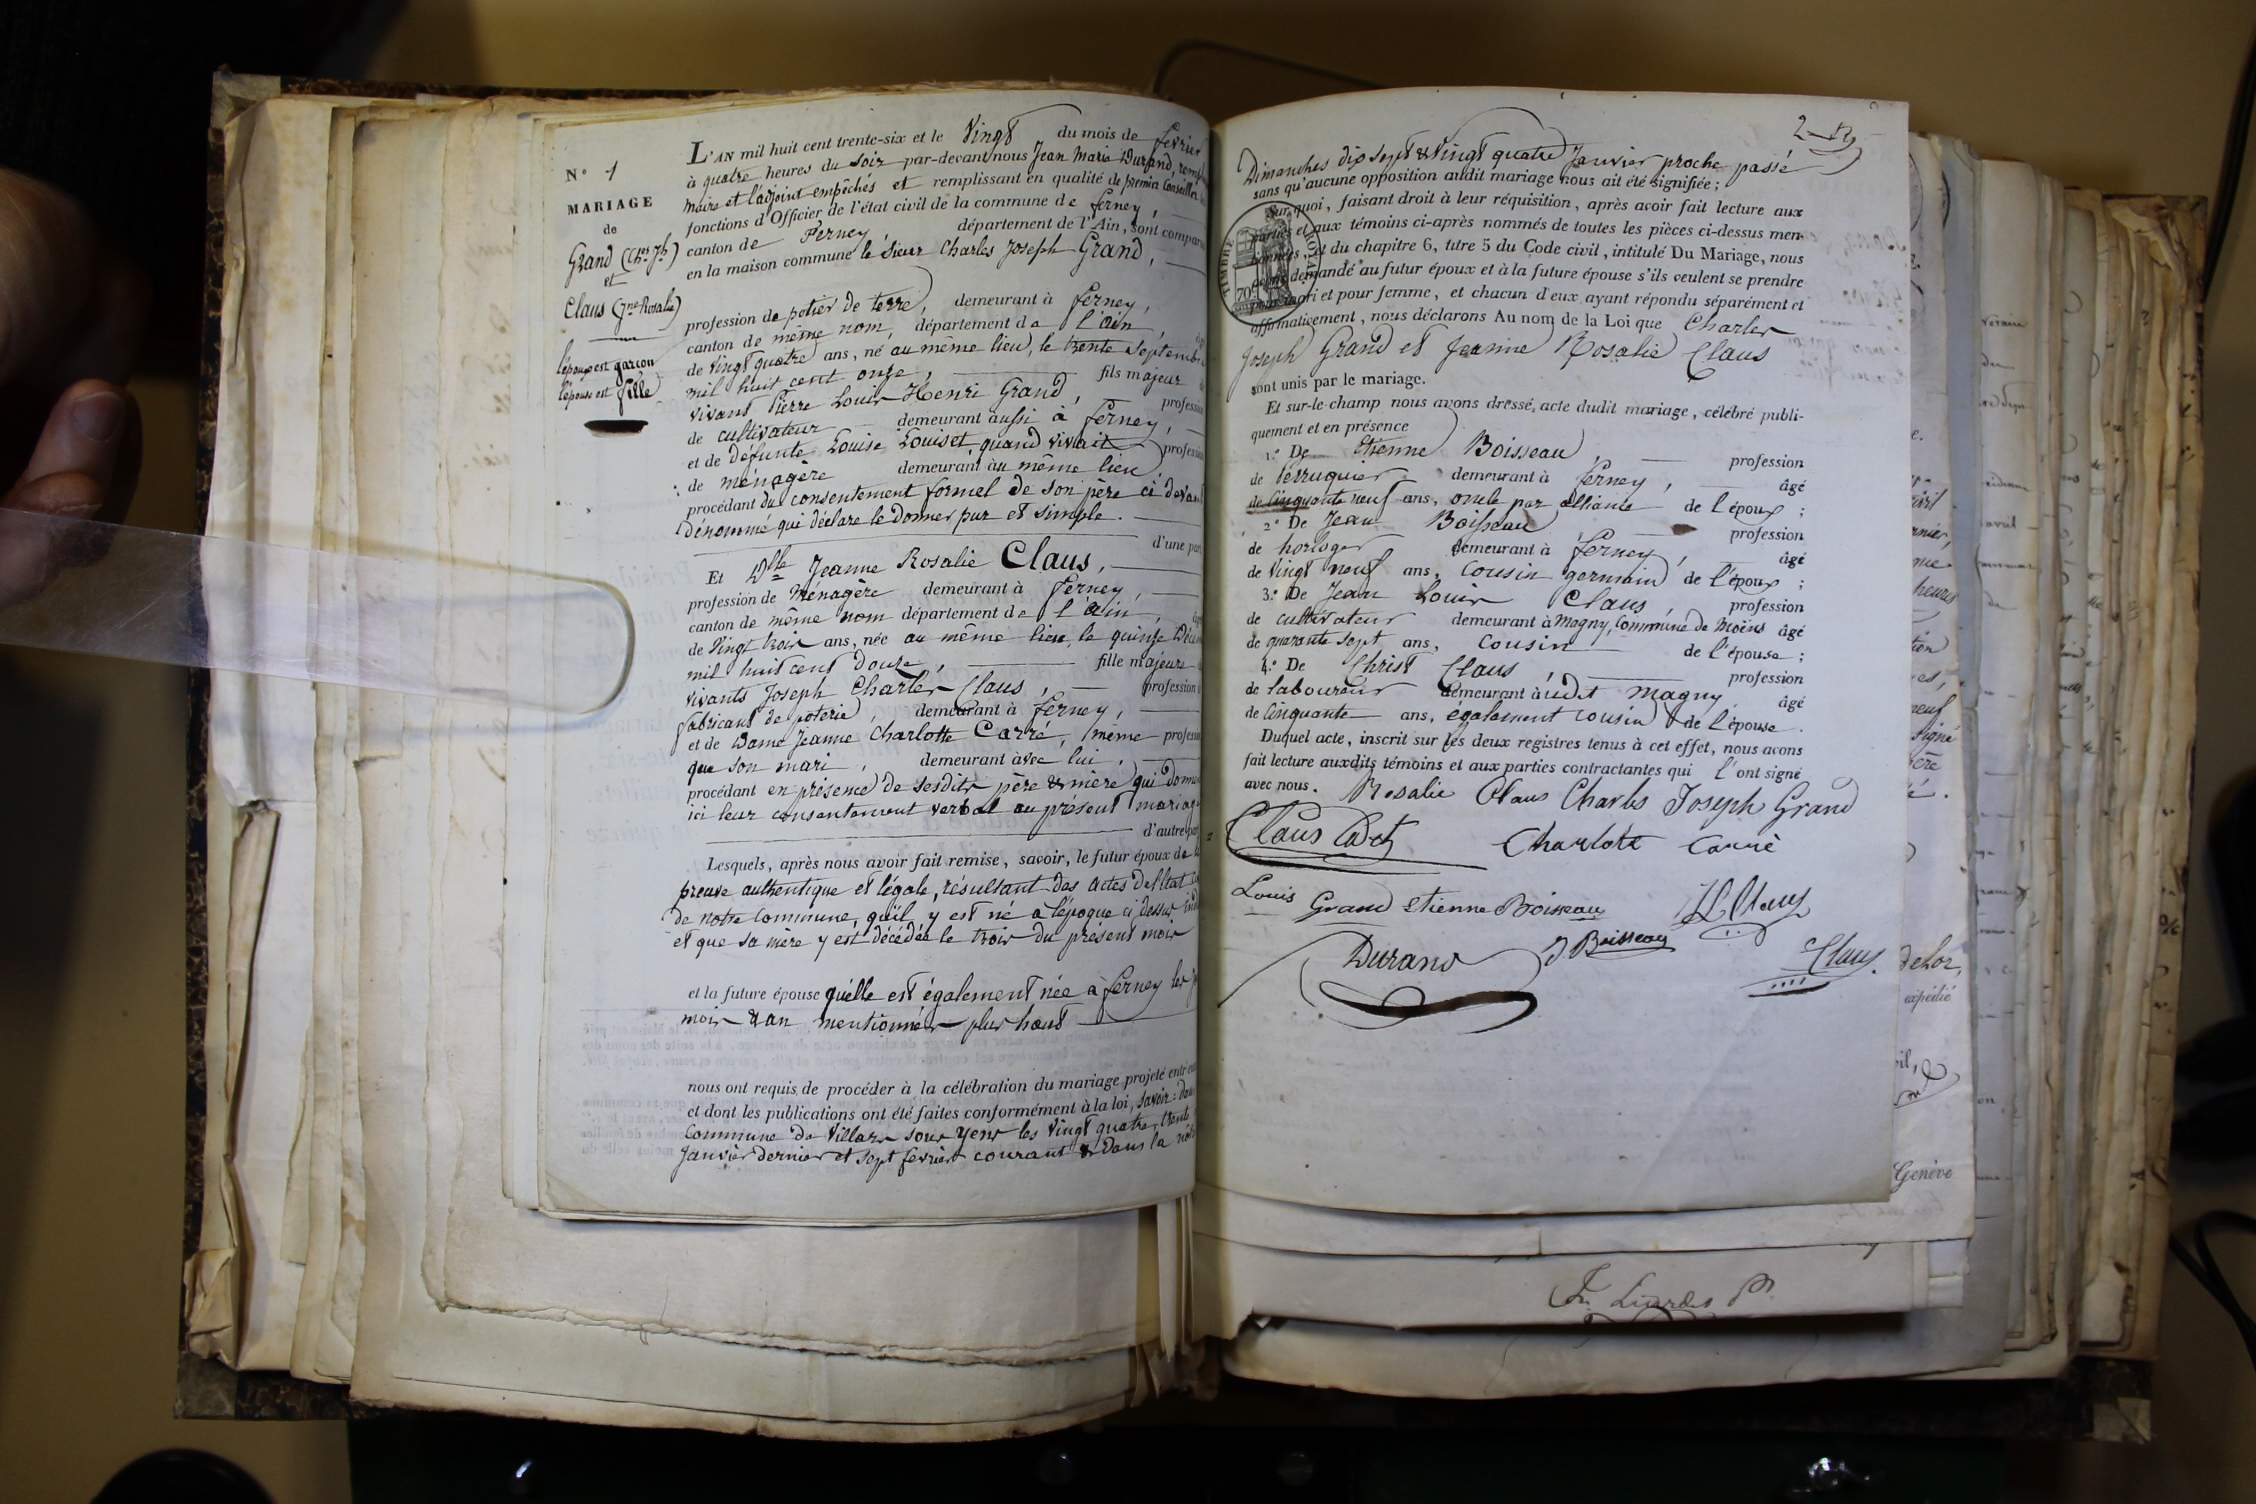 N° 1
MARIAGE
de
Grand (Chs Jh)
et
Claus (Jne Rosalie)
l'époux est garçon
l'épouse est fille
L'AN mil huit cent trente-six et le Vingt du mois de février
à quatre heures du soir par-devant nous Jean Marie Durand,
maire et l'adjoint empêchés et remplissant en qualité de premier Conseiller
fonctions d'Officier de l'état civil de la commune de ferney,
canton de Ferney, département de l'Ain, sont compar
en la maison commune le Sieur Charles Joseph Grand,
profession de potier de terre, demeurant à ferney,
canton de même nom, département de l'ain,
de Vingt quatre ans, né au même lieu, le trente Septembre
mil huit cent onze, fils majeur
vivant Pierre Louis Henri Grand, profession
de cultivateur demeurant aussi à ferney,
et de défunte Louise Louiset, quand vivait profession
de ménagère demeurant au même lieu
procédant du consentement formel de son père ci devant
dénommé qui déclare le donner pur et simple.
d'une part
Et Dlle Jeanne Rosalie Claus,
profession de Ménagère demeurant à ferney,
canton de même nom département de l'ain,
de Vingt trois ans, née au même lieu, le quinze Décem
mil huit cent douze, fille majeure
vivants Joseph Charles Claus, profession
fabricant de poterie, demeurant à ferney,
et de Dame Jeanne Charlotte Carré, même profession
que son mari, demeurant avec lui,
procédant en présence de sesdits père & mère qui donnent
ici leur consentement verbal au présent mariage
d'autre part
Lesquels, après nous avoir fait remise, savoir, le futur époux de la
preuve authentique et légale, résultant des actes de l'Etat
de notre Commune, qu'il y est né à l'époque ci dessus
et que sa mère y est décédée le trois du présent mois
et la future épouse qu'elle est également née à ferney les
mois & an mentionnés plus haut
nous ont requis de procéder à la célébration du mariage projeté entre
et dont les publications ont été faites conformément à la loi, savoir: dans
Commune de Villars sous Yens les Vingt quatre, trente
Janvier dernier et sept février courant & dans la nôtre
2
Dimanches dix sept & Vingt quatre Janvier proche passé
sans qu'aucune opposition audit mariage nous ait été signifiée;
Sur quoi, faisant droit à leur réquisition, après avoir fait lecture aux
parties et aux témoins ci-après nommés de toutes les pièces ci-dessus men-
tionnées, et du chapitre 6, titre 5 du Code civil, intitulé Du Mariage, nous
avons demandé au futur époux et à la future épouse s'ils veulent se prendre
pour mari et pour femme, et chacun d'eux ayant répondu séparément et
affirmativement, nous déclarons Au nom de la Loi que Charles
Joseph Grand et Jeanne Rosalie Claus
sont unis par le mariage.
TIMBRE ROYAL
70
Et sur-le-champ nous avons dressé acte dudit mariage, célébré publi-
quement et en présence
1.° De Etienne Boisseau, profession
de Perruquier demeurant à ferney, âgé
de Cinquante neuf ans, oncle par alliance de l'époux;
2.° De Jean Boisseau profession
de horloger demeurant à ferney, âgé
de Vingt neuf ans, Cousin germain de l'époux;
3.° De Jean Louis Claus, profession
de cultivateur demeurant à Magny, Commune de Moëns âgé
de quarante sept ans, Cousin de l'épouse;
4.° De Christ Claus, profession
de laboureur demeurant à udit Magny âgé
de Cinquante ans, également cousin de l'épouse.
Duquel acte, inscrit sur les deux registres tenus à cet effet, nous avons
fait lecture auxdits témoins et aux parties contractantes qui l'ont signé
avec nous. Rosalie Claus Charles Joseph Grand
Claus Cadet Charlotte Carré
Louis Grand Etienne Boisseau JL Claus
Durand J Boisseau Claus
heures
Genève
expédié